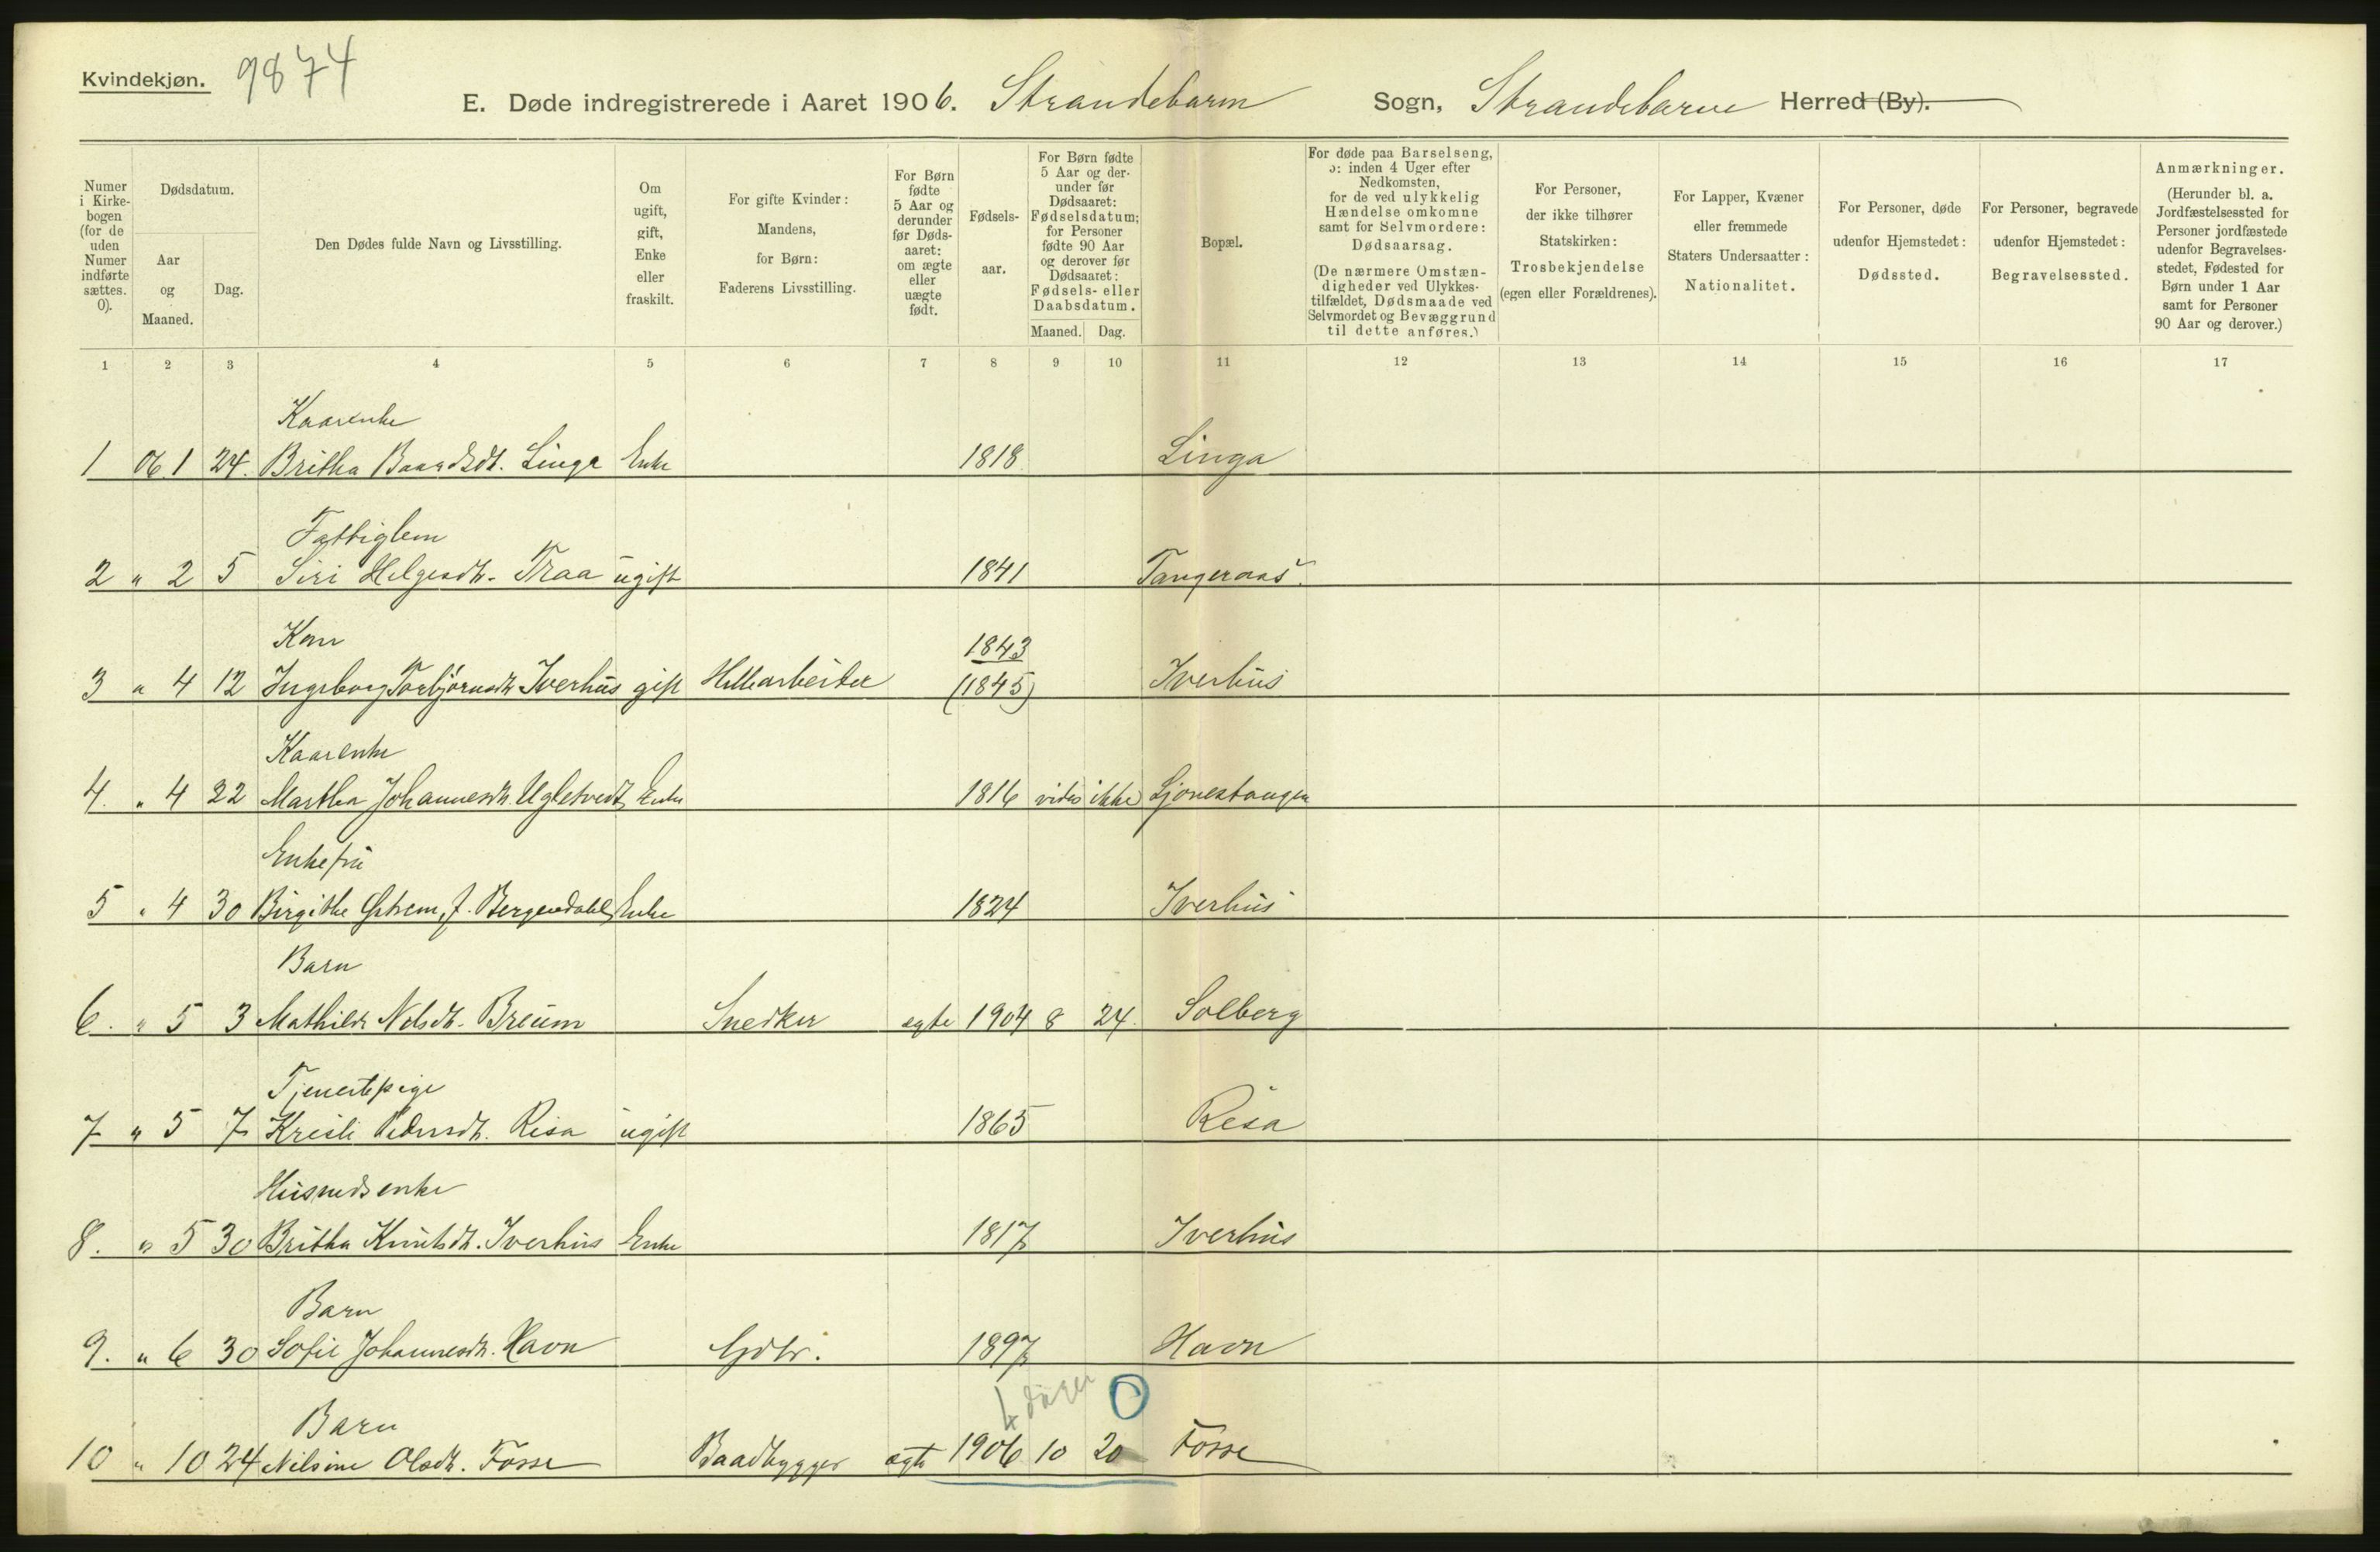 Kvindekjøn. 9874
E. Døde indregistrerede i Aaret 1906. Strandebarm Sogn, Strandebarm Herred (By).
Numer i Kirke-bogen (for de uden Numer indførte sættes. 0).
Dødsdatum.
Aar og Maaned.
Dag.
Den Dødes fulde Navn og Livsstilling.
Om ugift, gift, Enke eller fraskilt.
For gifte Kvinder: Mandens, for Børn: Faderens Livsstilling.
For Børn fødte 5 Aar og derunder før Døds-aaret: om ægte eller uægte født.
Fødsels-aar.
For Børn fødte 5 Aar og der-under før Dødsaaret: Fødselsdatum; for Personer fødte 90 Aar og derover før Dødsaaret: Fødsels- eller Daabsdatum.
Maaned. Dag.
Bopæl.
For døde paa Barselseng, ɔ: inden 4 Uger efter Nedkomsten, for de ved ulykkelig Hændelse omkomne samt for Selvmordere: Dødsaarsag.
(De nærmere Omstæn-digheder ved Ulykkes-tilfældet, Dødsmaade ved Selvmordet og Bevæggrund til dette anføres.)
For Personer, der ikke tilhører Statskirken: Trosbekjendelse (egen eller Forældrenes).
For Lapper, Kvæner eller fremmede Staters Undersaatter: Nationalitet.
For Personer, døde udenfor Hjemstedet: Dødssted.
For Personer, begravede udenfor Hjemstedet: Begravelsessted.
Anmærkninger.
(Herunder bl. a. Jordfæstelsessted for Personer jordfæstede udenfor Begravelses-stedet, Fødested for Børn under 1 Aar samt for Personer 90 Aar og derover.)
1 2 3 4 5 6 7 8 9 10 11 12 13 14 15 16 17
Kaarenke
1 06.1 24. Britha Baardsdt. Linga Enke 1818 Linga
Fattiglem
2 " 2 5 Siri Helgesdt. Traa ugift 1841 Tangeraas.
Kone 1843
3 " 4 12 Ingeborg Torbjørnsdt. Iverhus gift (1845) Iverhus
Kaarenke
4. " 4 22 Martha Johannesdt. Ugletvedt, Enke 1816 vides ikke Ljonestangen
Enkefru
5 " 4 30 Birgithe Østrem, f. Bergendahl, Enke 1824 Iverhus
Barn
6. " 5 3 Mathilde Nelsdt. Breum Snedker egte 1904 8 24. Solberg
Tjenestepige
7 " 5 7 Kristi Pedersdt. Risa ugift 1865 Risa
Husmdsenke
8. " 5 30 Britha Knutsdt. Iverhus Enke 1817 Iverhus
Barn
9. " 6 30 Sofie Johannesdt. Havn Gdbr. 1897 Havn
4 dager 0
Barn
10 " 10 24 Nilsine Olsdt. Fosse Baadbygger egte 1906 10 20 Fosse